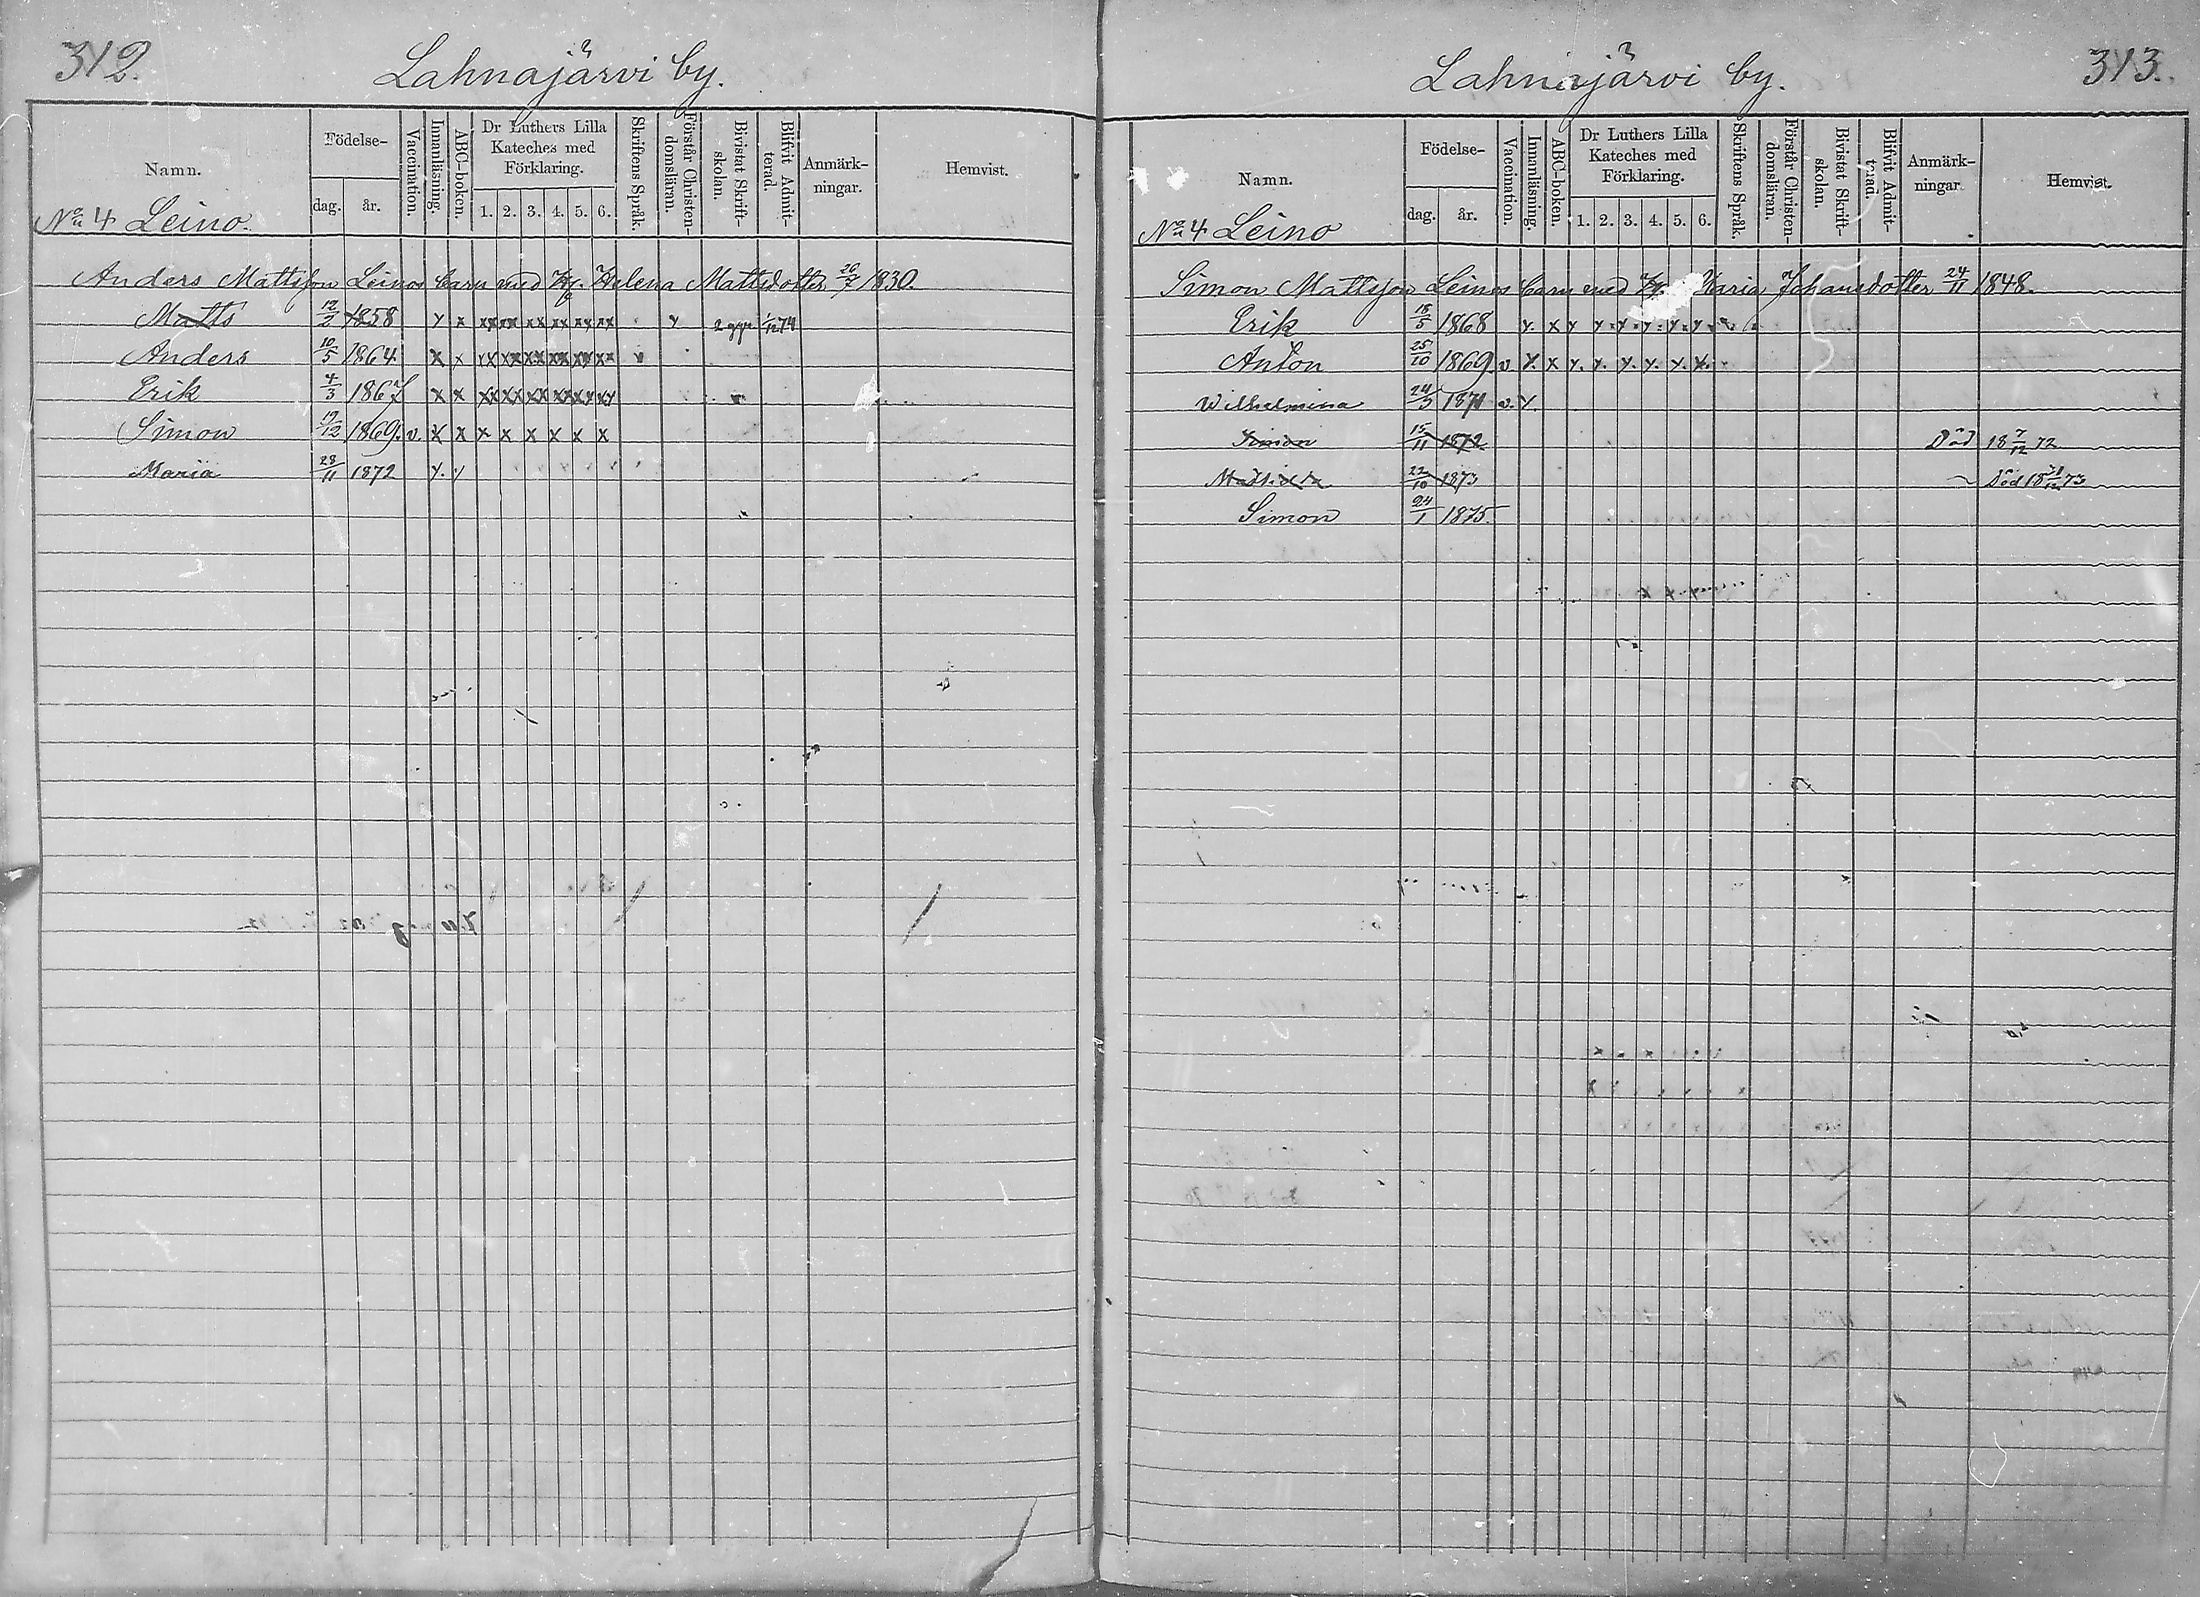 312.
Lahnajärvi by.
Namn.
Födelse-
dag. år.
Vaccination.
Innanläsning.
ABC-boken.
Dr Luthers Lilla
Kateches med
Förklaring.
1. 2. 3. 4. 5. 6.
Skriftens Språk.
Förstår Christen-
domsläran.
Bivistat Skrift-
skolan.
Blifvit Admit-
terad.
Anmärk-
ningar.
Hemvist.
No 4 Leino.
Anders Mattsson Leinos barn med Helena Mattsdotter 26/7 1830.
Matts 12/2 1858 y x xx xx xx xx xx xx y 2 ggr 1/12 74
Anders 10/5 1864 x x
Erik 4/3 1867 x x
Simon 19/12 1869. v. x x x x x x x x
Maria 28/11 1872 y. y
313.
Lahnajärvi by.
Namn.
Födelse-
dag. år.
Vaccination.
Innanläsning.
ABC-boken.
Dr Luthers Lilla
Kateches med
Förklaring.
1. 2. 3. 4. 5. 6.
Skriftens Språk.
Förstår Christen-
domsläran.
Bivistat Skrift-
skolan.
Blifvit Admit-
terad.
Anmärk-
ningar
Hemvist.
No 4 Leino
Simon Mattsson Leinos barn med Maria Johansdotter 24/11 1848.
Erik 18/5 1868 y. x y y y y y y
Anton 25/10 1869 v y. x y. y. y. y. y. y.
Wilhelmina 24/5 1871 v. y.
Simon 15/11 1872 Död 18 7/12 72
22/10 1873 Död 18 31/12 73
Simon 24/1 1875.